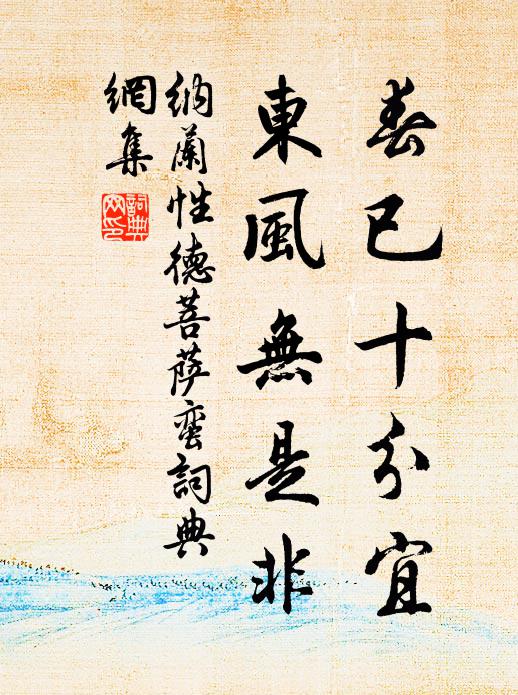 春已十分宜
東風無是非
納蘭性德菩薩蠻詞典
網集
詞典
网印